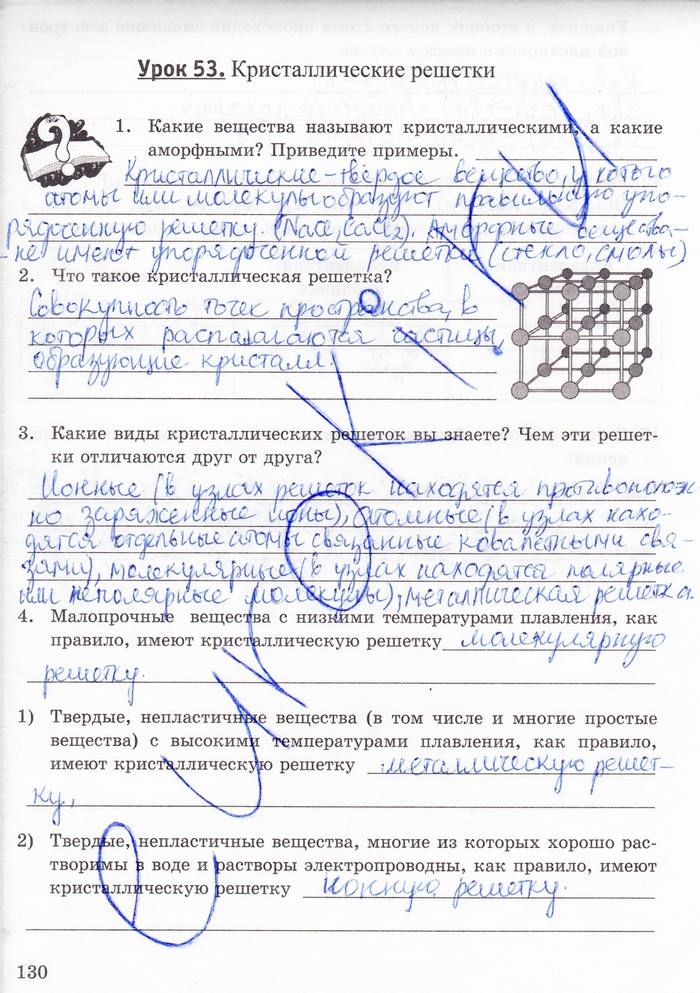 Урок 53. Кристаллические решетки
1. Какие вещества называют кристаллическими, а какие
аморфными? Приведите примеры.
Кристаллические - твёрдое вещество, у котого
атомы или молекулы образуют правильную упо-
рядоченную решетку. (NaCl, CaCl₂). Аморфные вещества-
- не имеют упорядоченной решетки (стекло, смолы)
2. Что такое кристаллическая решетка?
Совокупность точек пространства, в
которых распалагаются частицы,
образующие кристалл.
3. Какие виды кристаллических решеток вы знаете? Чем эти решет-
ки отличаются друг от друга?
Ионные (в узлах решеток находятся противополож-
но заряженные ионы), атомные (в узлах нахо-
дятся отдельные атомы связанные ковалетными свя-
зями), молекулярные (в узлах находятся полярные
или неполярные молекулы), металлическая решетка.
4. Малопрочные вещества с низкими температурами плавления, как
правило, имеют кристаллическую решетку молекулярную
решетку.
1) Твердые, непластичные вещества (в том числе и многие простые
вещества) с высокими температурами плавления, как правило,
имеют кристаллическую решетку металлическую решет-
ку,
2) Твердые, непластичные вещества, многие из которых хорошо рас-
творимы в воде и растворы электропроводны, как правило, имеют
кристаллическую решетку ионную решетку.
130